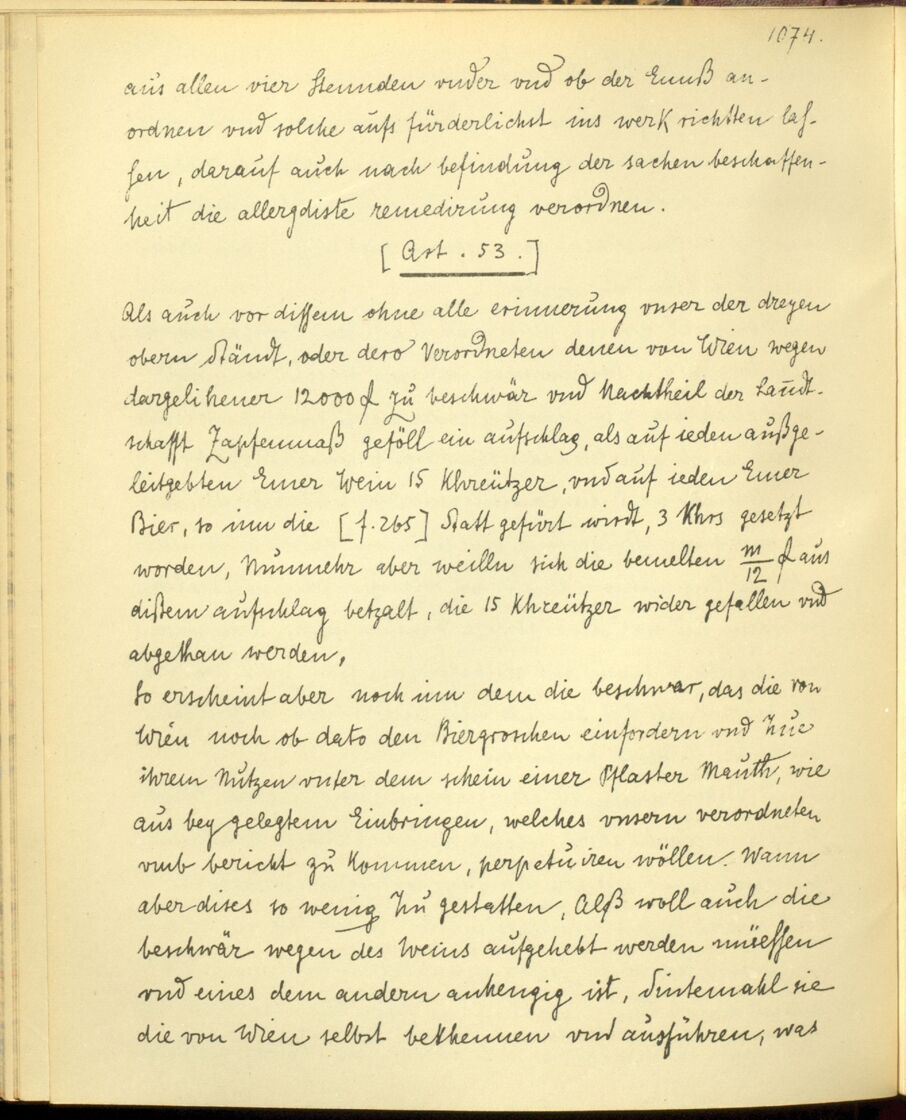 1074.
aus allen vier Stennden vnder vnd ob der Ennß an-
ordnen vnd solche aufs fürderlichst ins werk richtten las-
sen, darauf auch nach befindung der sachen beschaffen-
heit die allergdiste remedirung verordnen.
[Art. 53.]
Als auch vor dissem ohne alle erinnerung vnser der dreyen
obern Ständt, oder dero Verordneten denen von Wien wegen
dargelihener 12000 f zu beschwär vnd Nachtheil der Landt-
schafft Zapfenmaß geföll ein aufschlag, als auf ieden außge-
leitgebten Emer Wein 15 Khreützer, vnd auf ieden Emer
Bier, so inn die [f. 265] Statt gefürt wirdt, 3 Khrs gesetzt
worden, Nunmehr aber weilln sich die bemelten m/12 f aus
dißem aufschlag betzalt, die 15 Khreützer wider gefallen vnd
abgethan werden,
So erscheint aber noch inn dem die beschwar, das die von
Wien noch ob dato den Biergroschen einfordern vnd Zue
ihrem Nutzen vnter dem schein einer Pflaster Mauth, wie
aus beygelegtem Einbringen, welches vnsern verordneten
vmb bericht zu kommen, perpetuiren wöllen. Wann
aber dises so wenig Zu gestatten, Alß woll auch die
beschwär wegen des Weins aufgehebt werden müessen
vnd eines dem andern anhengig ist, Sintemahl sie
die von Wien selbst bekhennen vnd ausführen, was